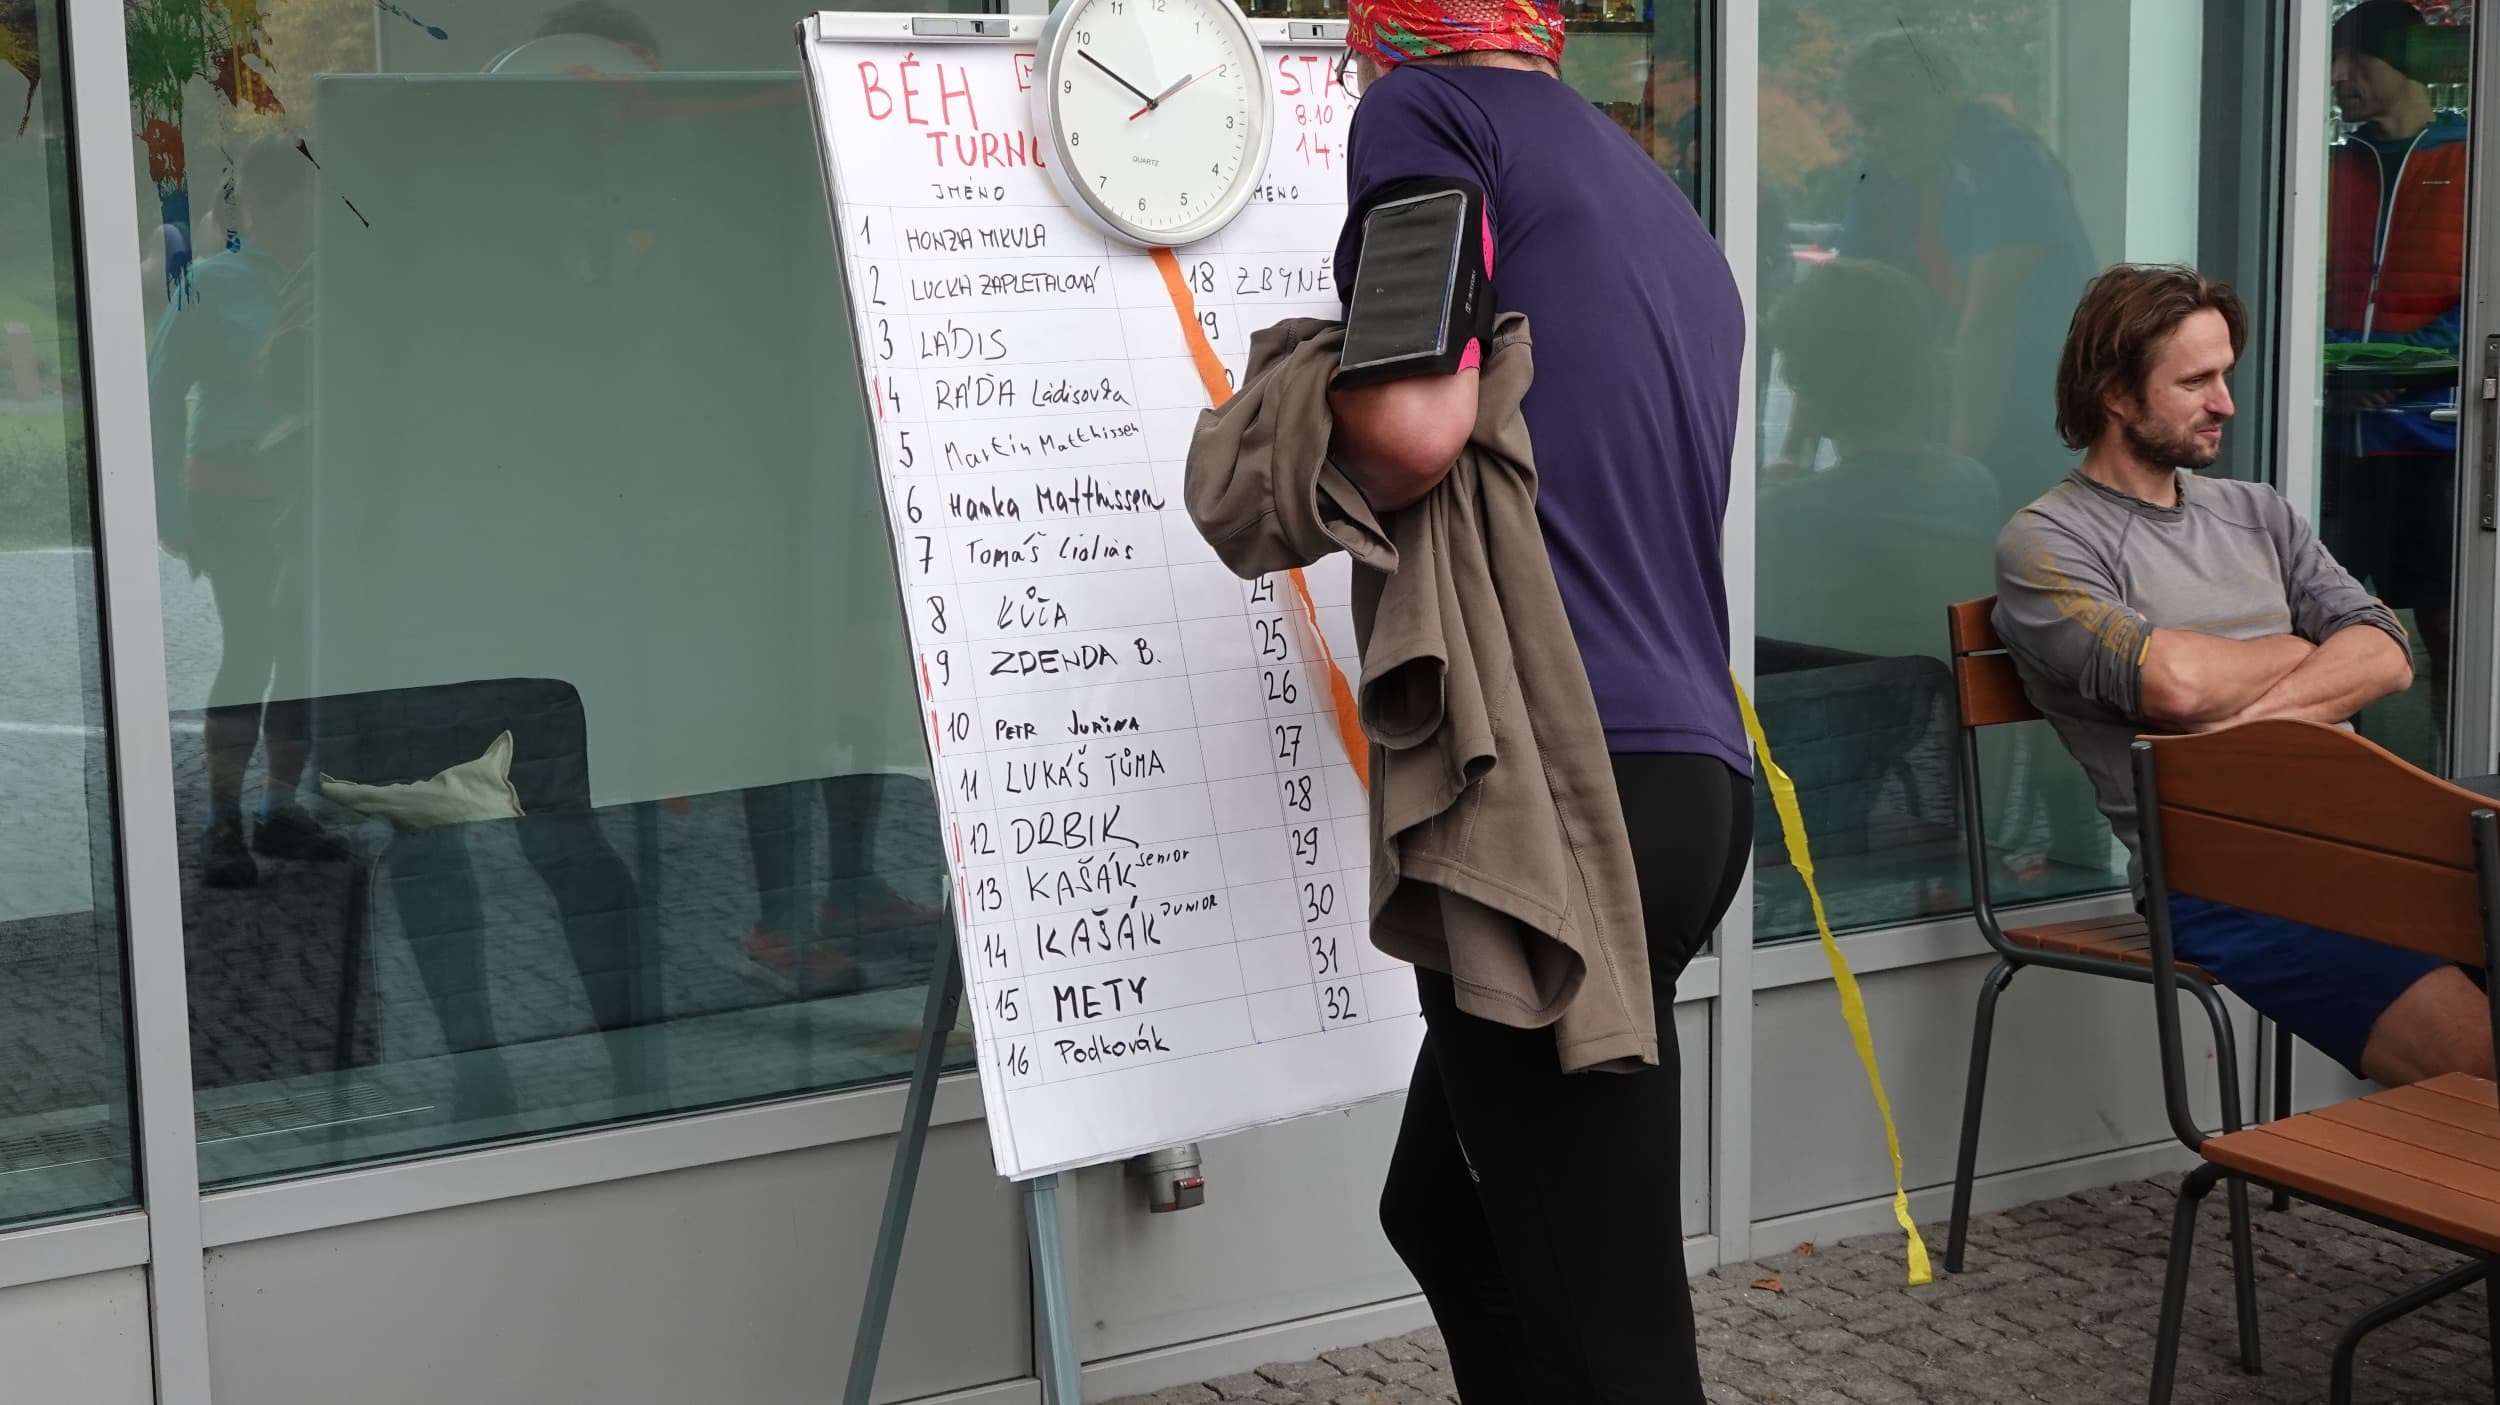 BĚH
STA
8.10
TURNO
14:
JMÉNO
MÉNO
1 HONZA MIKULA
2 LUCKA ZAPLETALOVÁ
18 ZBYNĚ
3 LÁDIS
19
4 RÁĎA Ládisovka
5 Martin Matthissen
6 Hanka Matthissen
7 Tomáš
8 KŮŤA
24
9 ZDENDA B.
25
10 PETR JUŘINA
26
11 LUKÁŠ TŮMA
27
12 DRBIK
28
13 KAŠÁK SENIOR
29
14 KAŠÁK JUNIOR
30
15 METY
31
16 Podkovák
32
11 12 1
10 2
9 3
8 4
7 6 5
QUARTZ